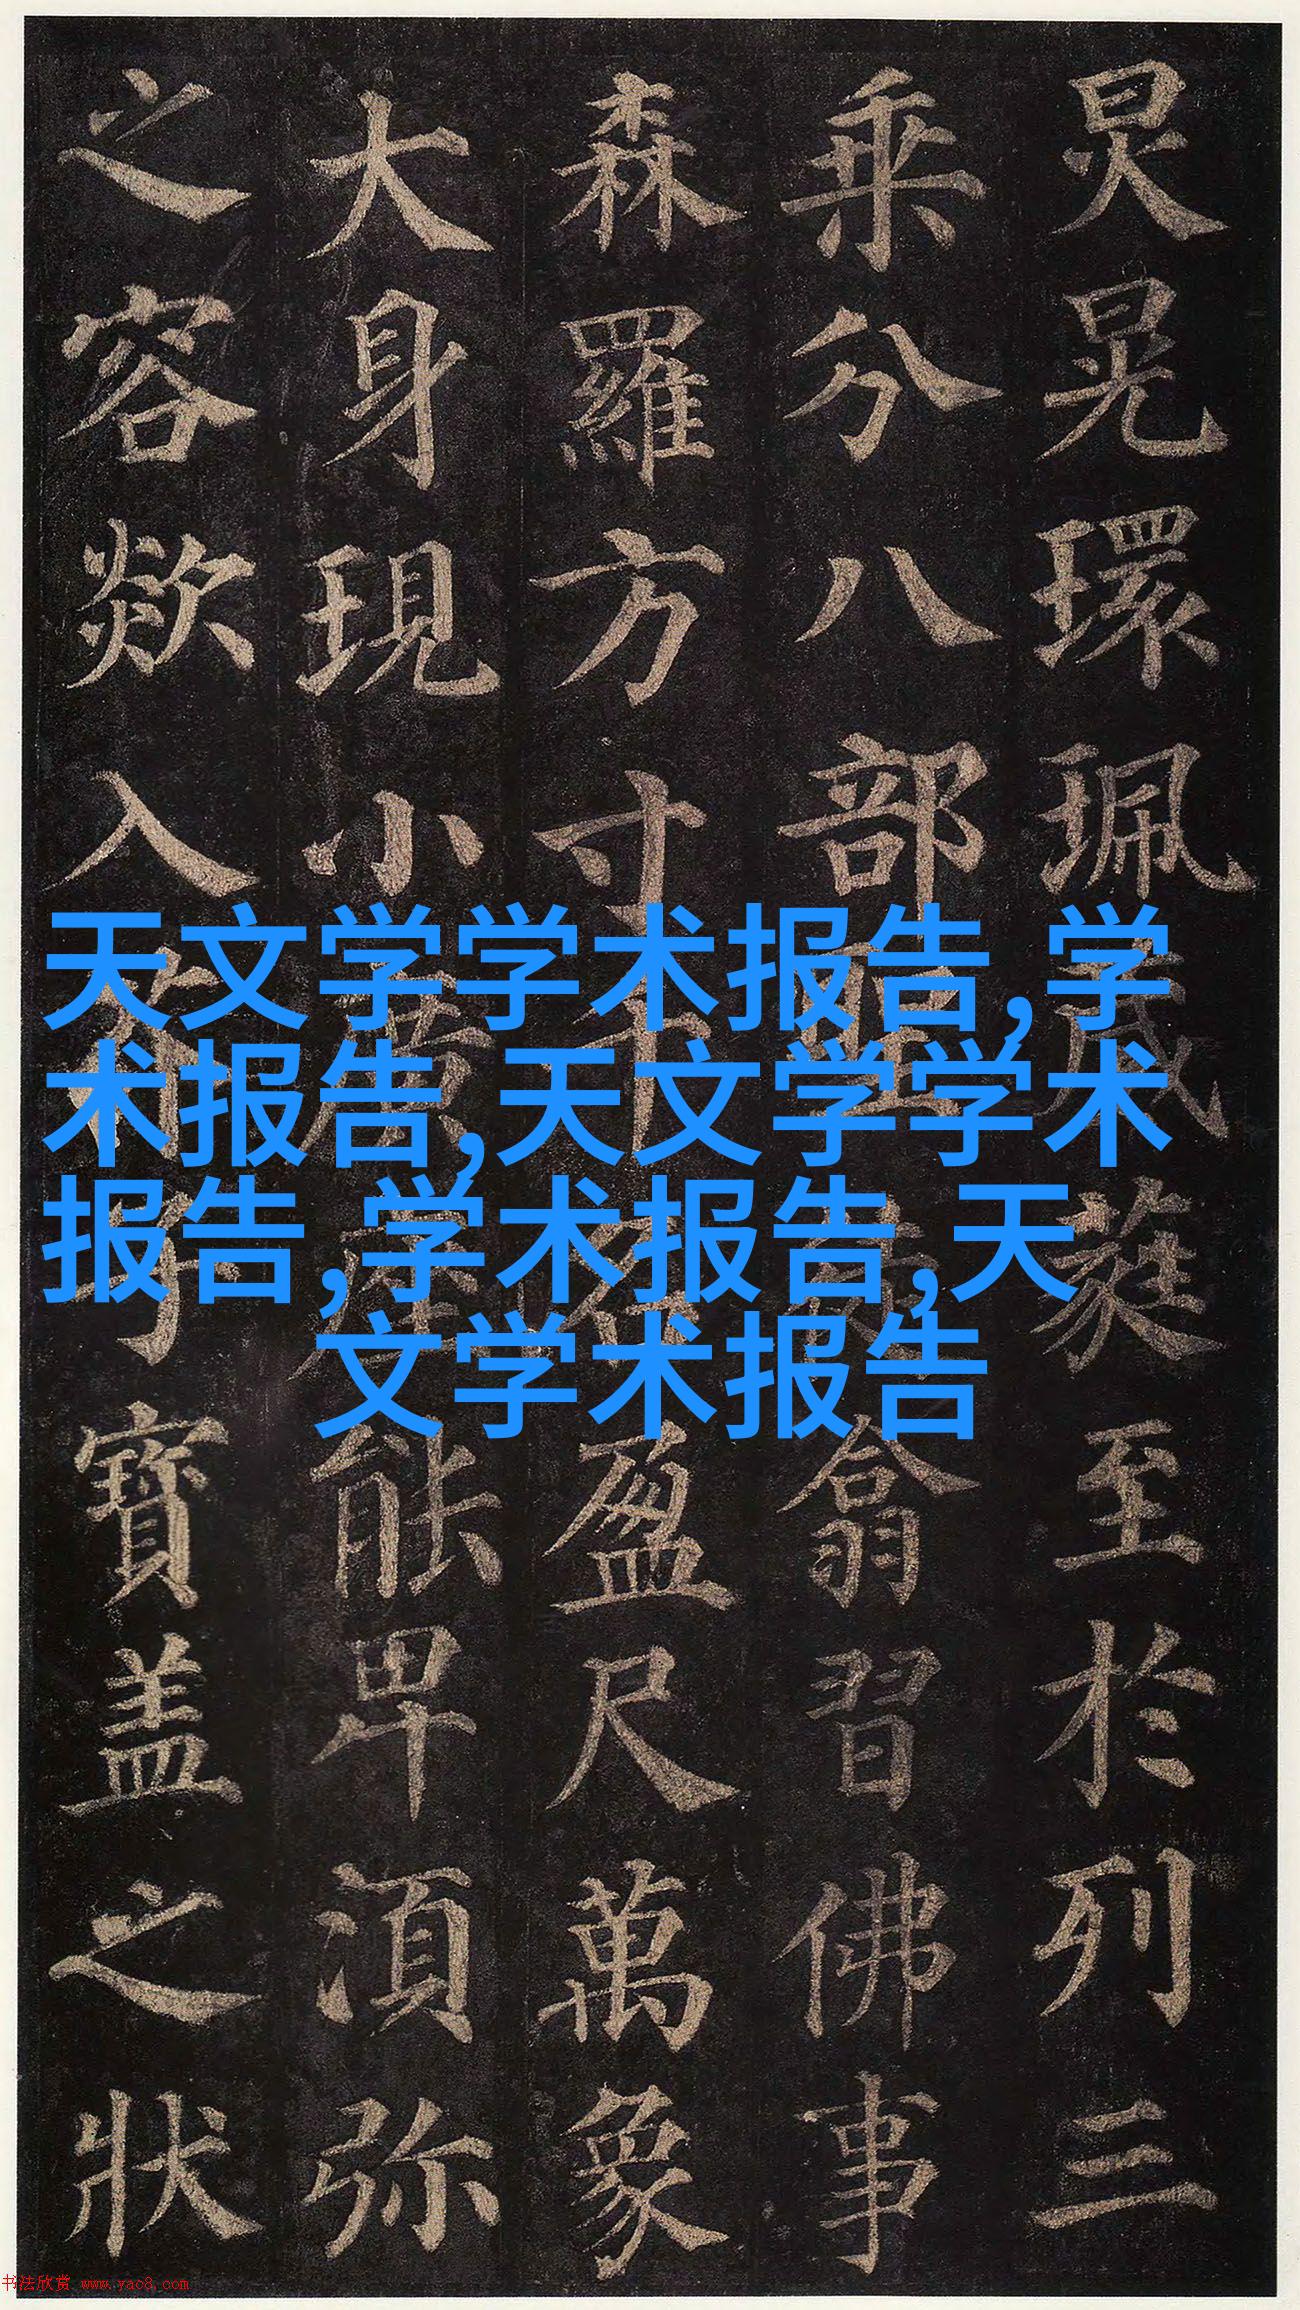 炅晃環珮葳蕤至於列三
乘分八部翕習佛事
森羅方寸盈尺萬象
大身現小能卑湏弥
之容欻入子寶盖之狀
天文学学术报告,学
术报告,天文学学术
报告,学术报告,天
文学术报告
书法欣赏 www.yac8.com